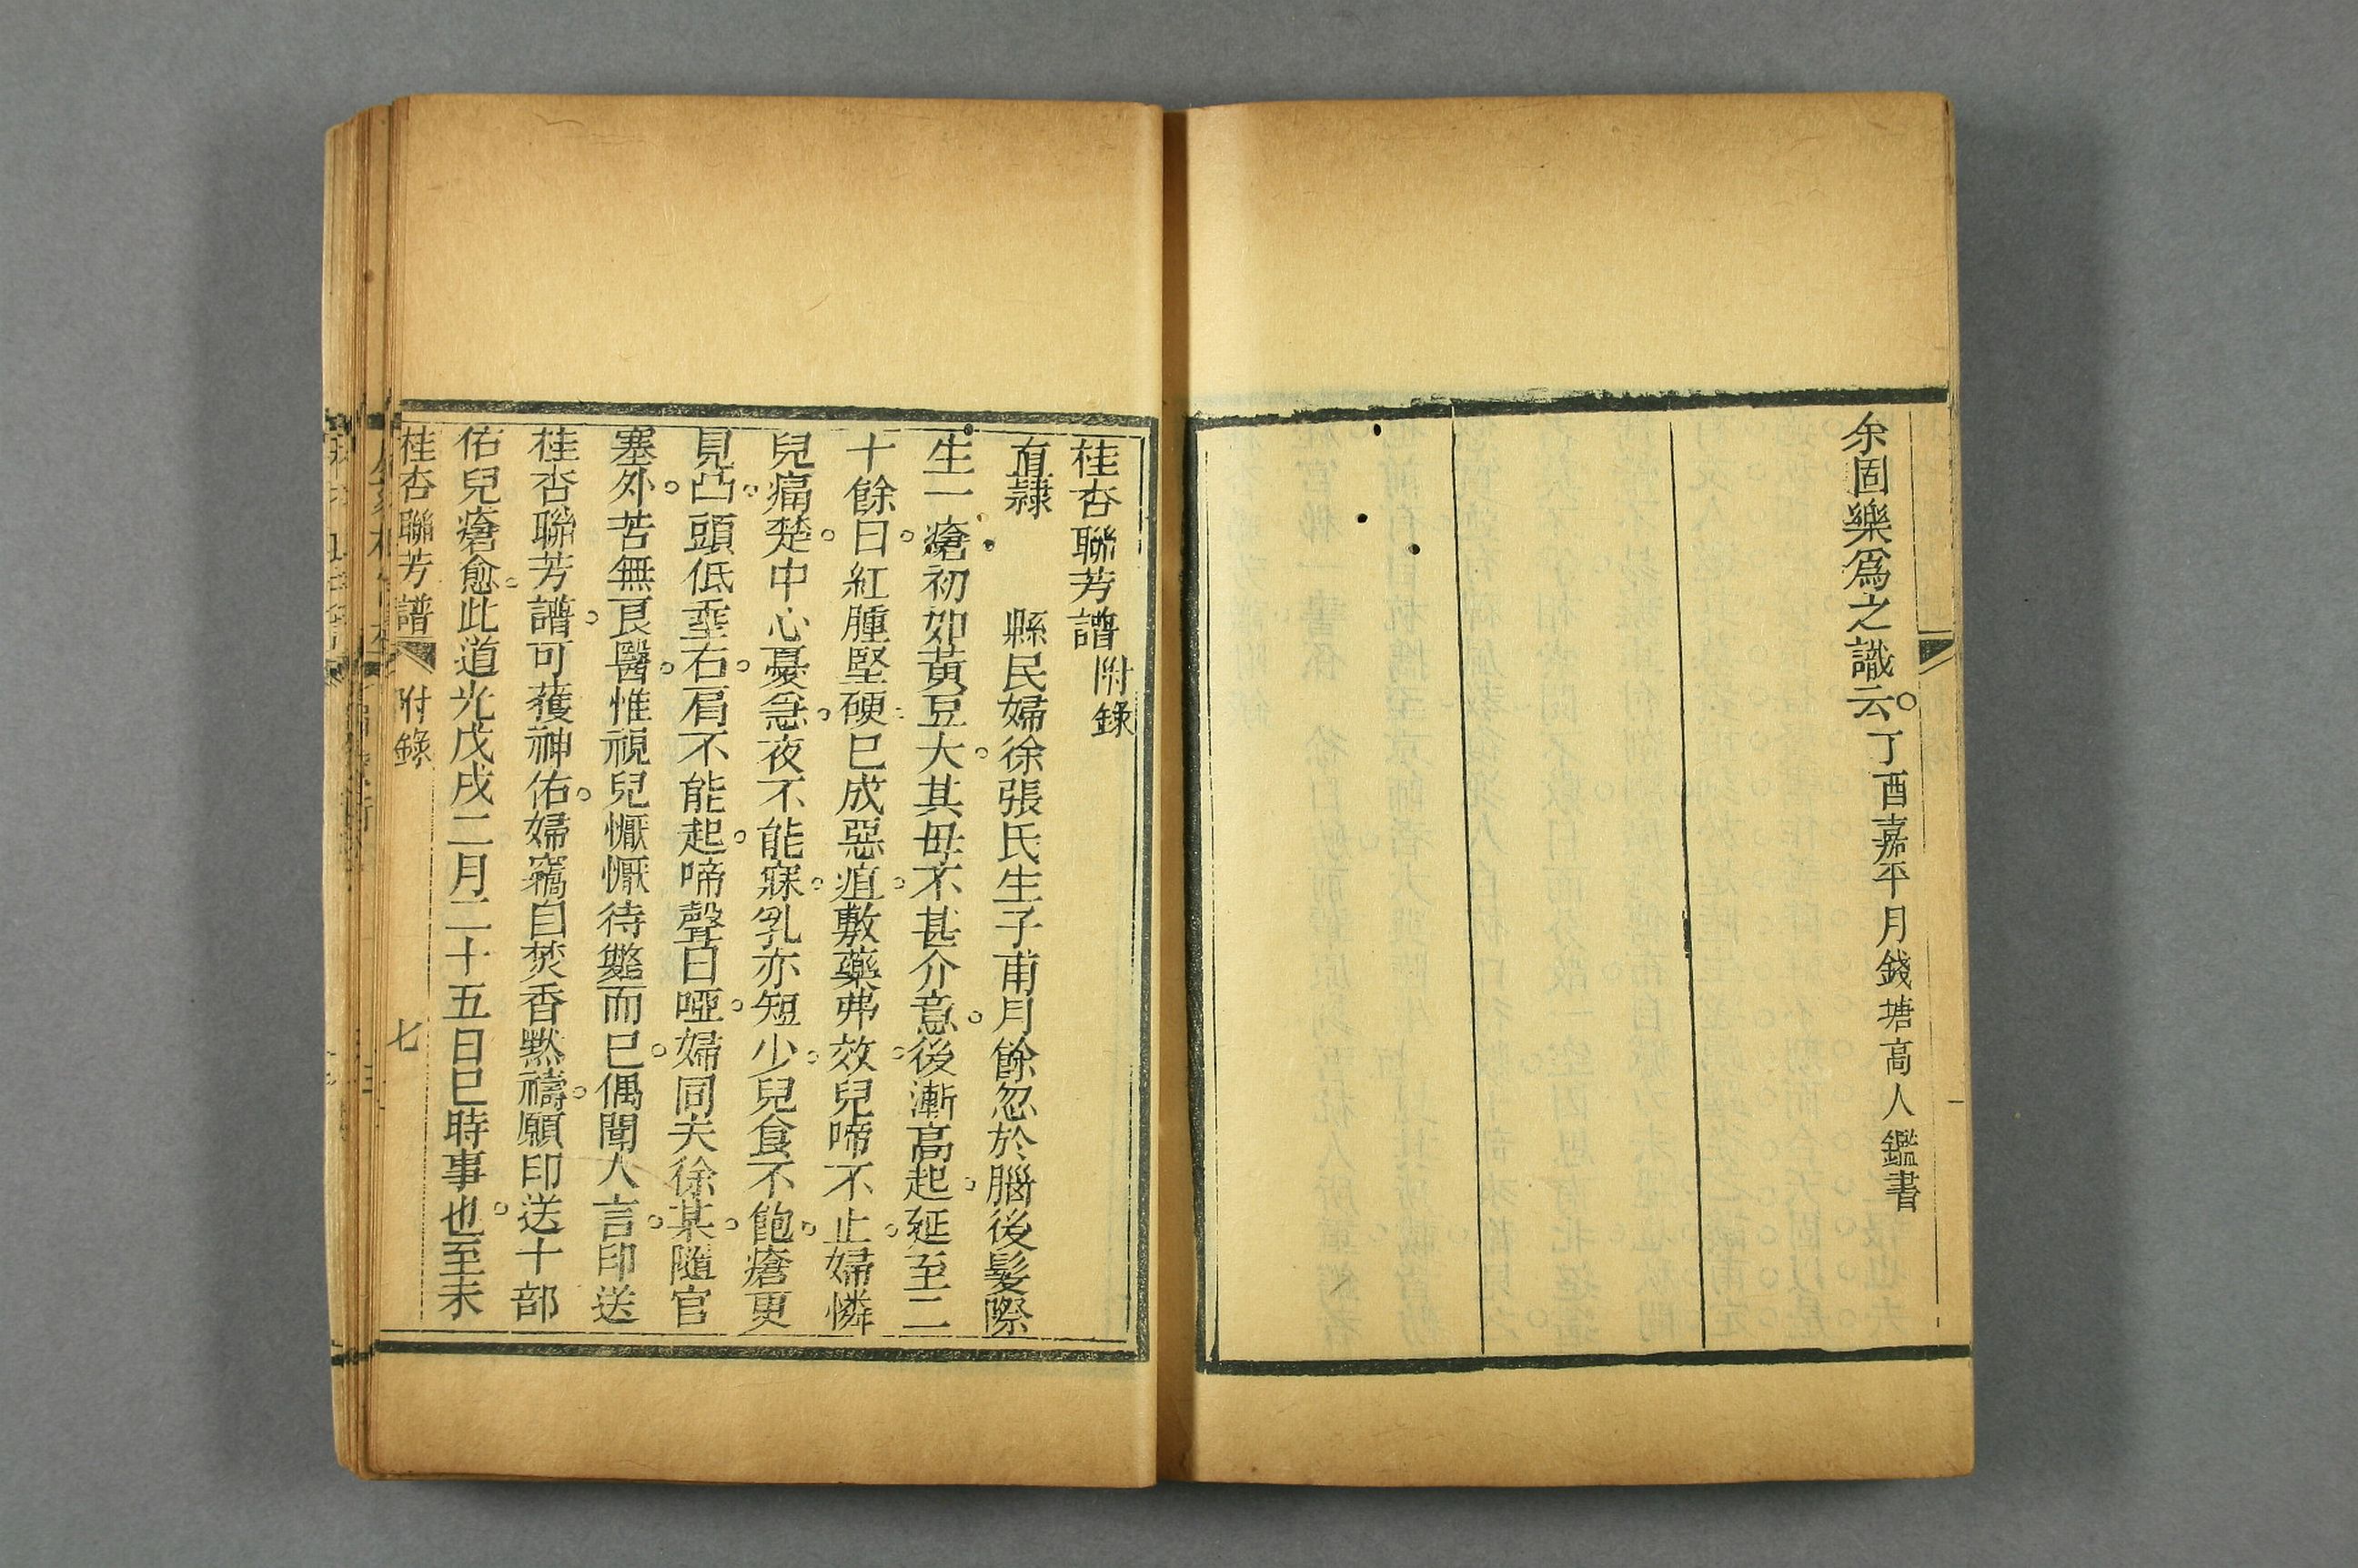 余固樂爲之識云。丁酉嘉平月錢塘高人鑑書
桂杏聯芳譜附錄
直隸　　縣民婦徐張氏生子甫月餘忽於腦後髮際
生一瘡初如黃豆大。其母不甚介意。後漸高起。延至二
十餘日。紅腫堅硬。已成惡疽。敷藥弗效。兒啼不止。婦憐
兒痛楚。中心憂急。夜不能寐。乳亦短少。兒食不飽。瘡更
見凸。頭低垂右。肩不能起。啼聲曰啞。婦同夫徐某。隨官
塞外。苦無艮醫。惟視兒懨懨待斃而已。偶聞人言。印送
桂杏聯芳譜。可獲神佑。婦竊自焚香默禱。願印送十部
佑兒瘡愈。此道光戊戌二月二十五日巳時事也。至未
桂杏聯芳譜　附錄　七